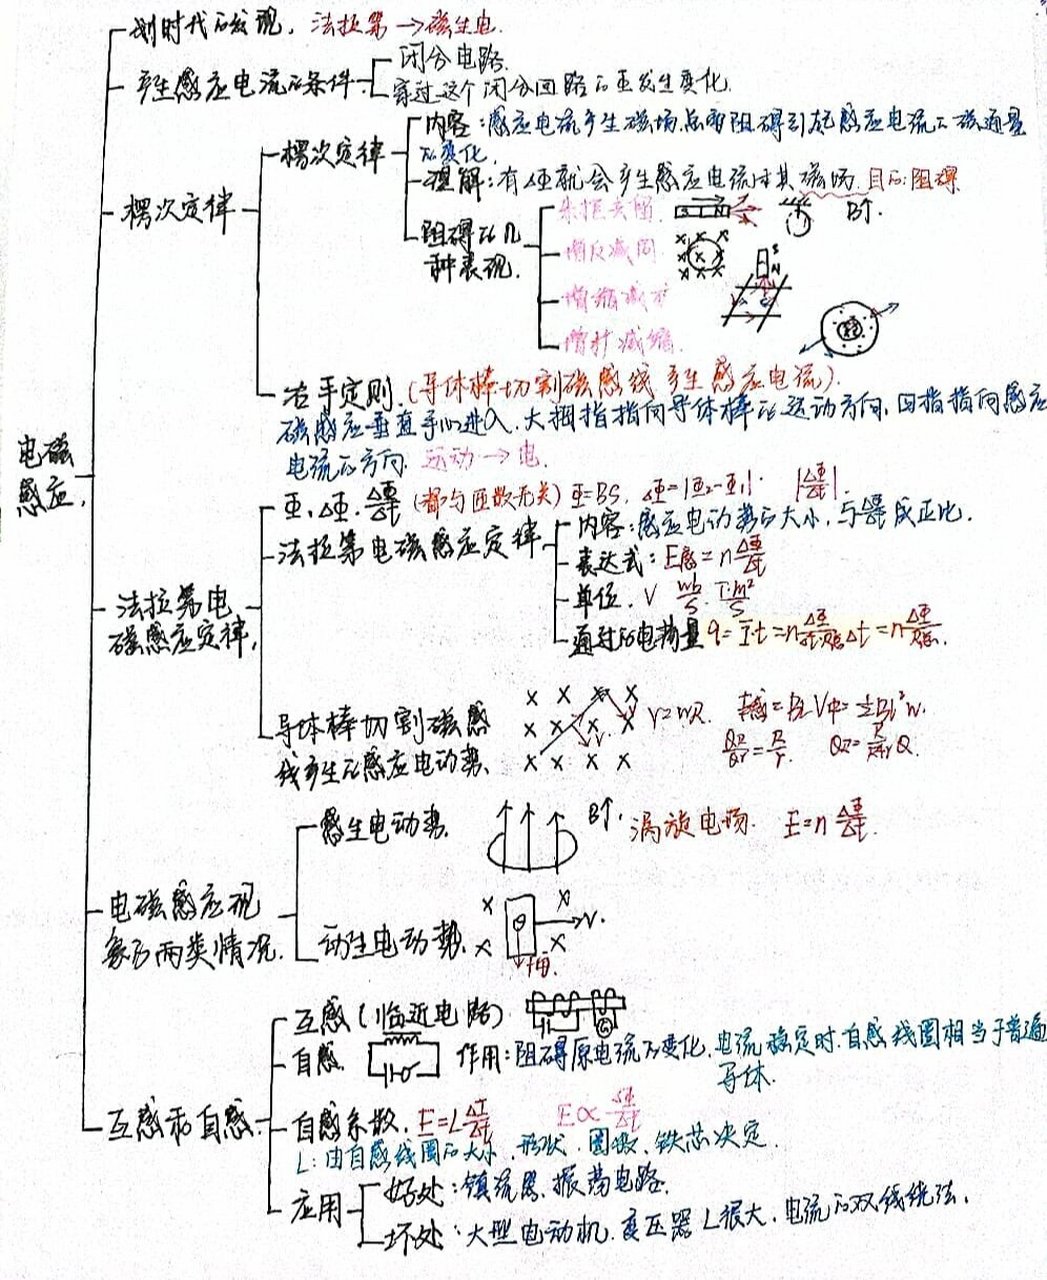 划时代的发现. 法拉第→磁生电.
产生感应电流的条件
闭合电路.
穿过这个闭合回路的Φ发生变化.
楞次定律
楞次定律
内容:感应电流产生磁场,总要阻碍引起感应电流的磁通量
的变化.
理解:有ΔΦ就会产生感应电流 其磁场. 目的:阻碍
阻碍的几
种表现.
来拒去留.
S N
B↑.
增反减同.
S
N
增缩减扩
增扩减缩.
右手定则.(导体棒切割磁感线产生感应电流).
磁感应垂直手心进入.大拇指指向导体棒的运动方向,四指指向感应
电流的方向. 运动→电.
电磁
感应.
Φ.ΔΦ.ΔΦ/Δt (都与匝数无关) Φ=BS. ΔΦ=|Φ₂-Φ₁|. |ΔΦ/Δt|.
法拉第电
磁感应定律.
法拉第电磁感应定律
内容:感应电动势的大小,与ΔΦ/Δt成正比.
表达式:E感=nΔΦ/Δt
单位. V wb/s. T·m²/s
通过的电荷量 q=Ī·t=nΔΦ/Δt·R总 Δt=nΔΦ/R总.
导体棒切割磁感
线产生的感应电动势.
V V=WR. E感=BLV中=½Bl²w.
QR/Qr=R/r. QR=R/R+r Q
电磁感应现
象的两类情况.
感生电动势.
B↑. 涡旋电场. E=nΔΦ/Δt.
动生电动势.
V.
互感和自感.
互感(临近电路).
G
自感. 作用:阻碍原电流的变化.电流稳定时.自感线圈相当于普通
导体.
自感系数. E=LΔI/Δt E∝ΔI/Δt
L:由自感线圈的大小.形状.圈数.铁芯决定.
应用
好处:镇流器.振荡电路.
坏处:大型电动机.变压器L很大.电流的双线绕法.